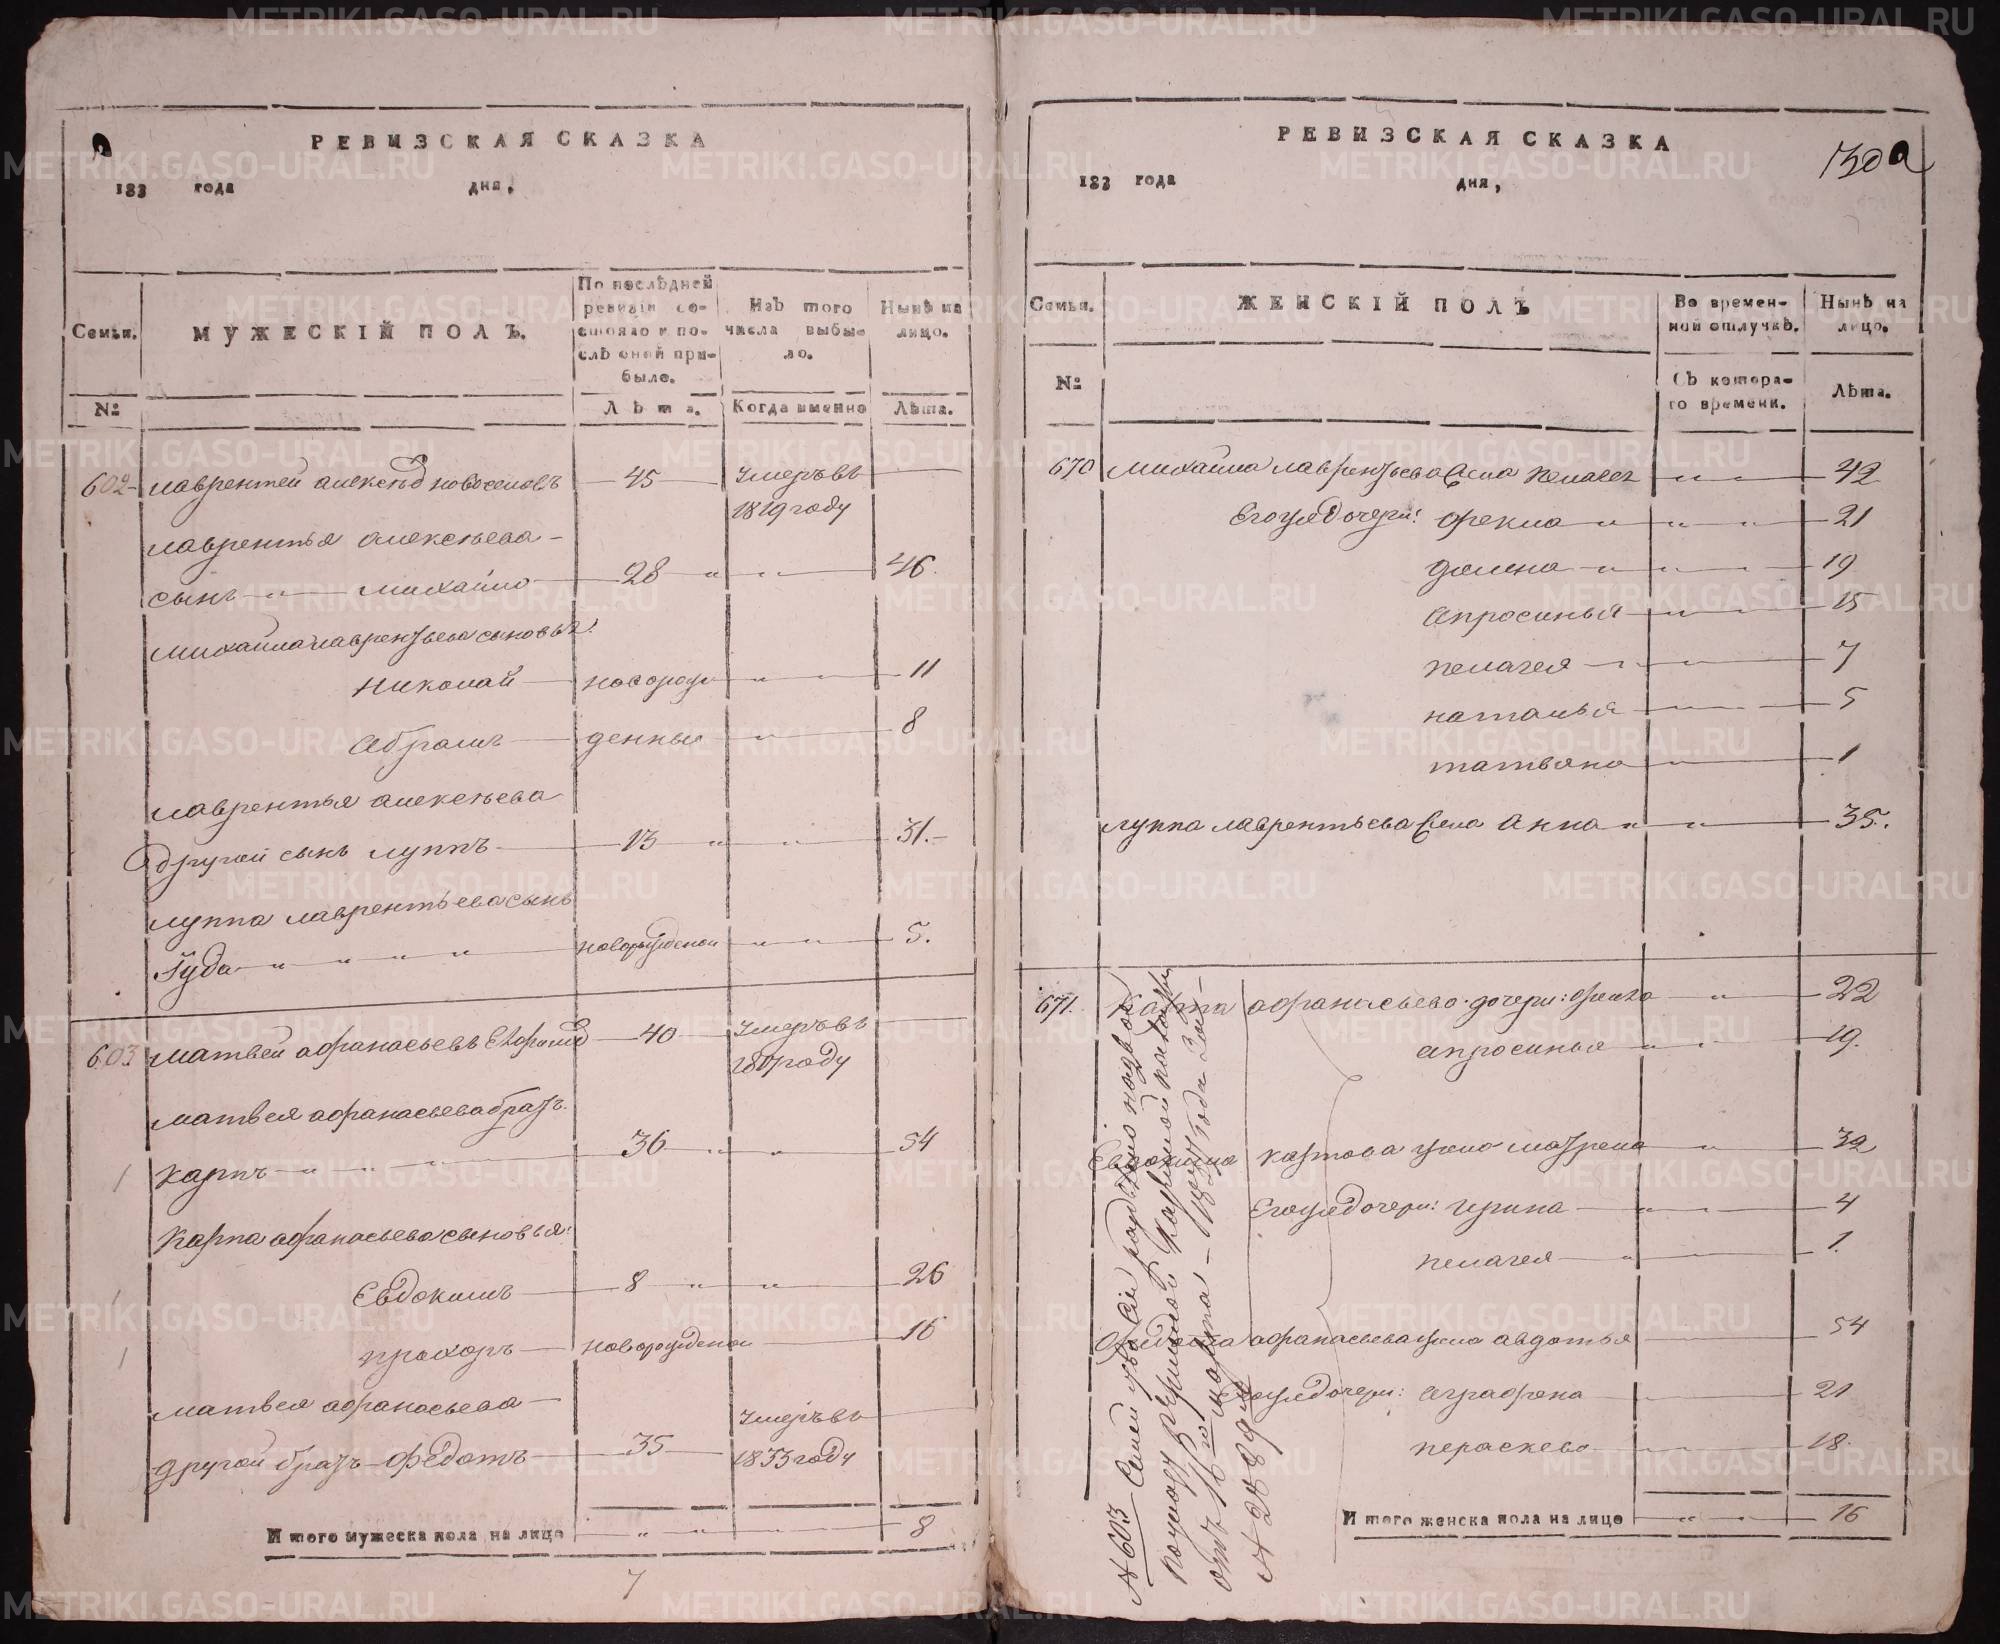 РЕВИЗСКАЯ СКАЗКА
183 года дня,
Семьи.
МУЖЕСКІЙ ПОЛЪ.
По послѣдней ревизіи состояло и послѣ оной прибыло.
Изъ того числа выбыло.
Нынѣ на лицо.
№
Лѣта.
Когда именно
Лѣта.
602 Лаврентей Алексѣевъ Новоселовъ 45 Умеръ въ
1819 году
Лаврентья Алексѣева
сынъ " Михайло 28 " " 46.
Михайла Лаврентьева сыновья:
Николай новорож " " 11
Абрамъ денные " 8
Лаврентья Алексѣева
другой сынъ Луппъ 13 " " 31.
Луппа Лаврентьева сынъ
Іуда " " " " новорожденой " " 5.
603 Матвей Афанасьевъ 40 Умеръ въ
году
Матвея Афанасьева братъ
1 Карпъ " " " 36 " " 54
Карпа Афанасьева сыновья:
1 Евдокимъ 8 " " 26
1 Прохоръ новорожденой 16
Матвея Афанасьева
другой братъ Федотъ 35 Умеръ въ
1833 году
Итого мужеска пола на лицо " " 8
7
РЕВИЗСКАЯ СКАЗКА
130
183 года дня,
Семьи.
ЖЕНСКІЙ ПОЛЪ
Во временной отлучкѣ.
Нынѣ на лицо.
№
Съ котораго времени.
Лѣта.
670 Михайла Лаврентьева жена Пелагея " " 42
Его же дочери: Фекла " " " 21
Домна " " " 19
Апросинья " " 15
Пелагея " " 7
Наталья " " 5
Татьяна " " 1
Луппа Лаврентьева жена Анна " " " 35.
671. Карпа Афанасьева дочери: Фекла " 22
Апросинья " " 19.
Евдокима Карпова жена Матрена " 32
Его же дочери: Ирина " " 4
Пелагея " 1.
Федота Афанасьева жена Авдотья 54
Его же дочери: Аграфена 21
Пераскева 18.
Итого женска пола на лицо " " 16
№ 603 Семейство сіе
Казенной палаты
отъ 16го марта
№ 2889м
METRIKI.GASO-URAL.RU